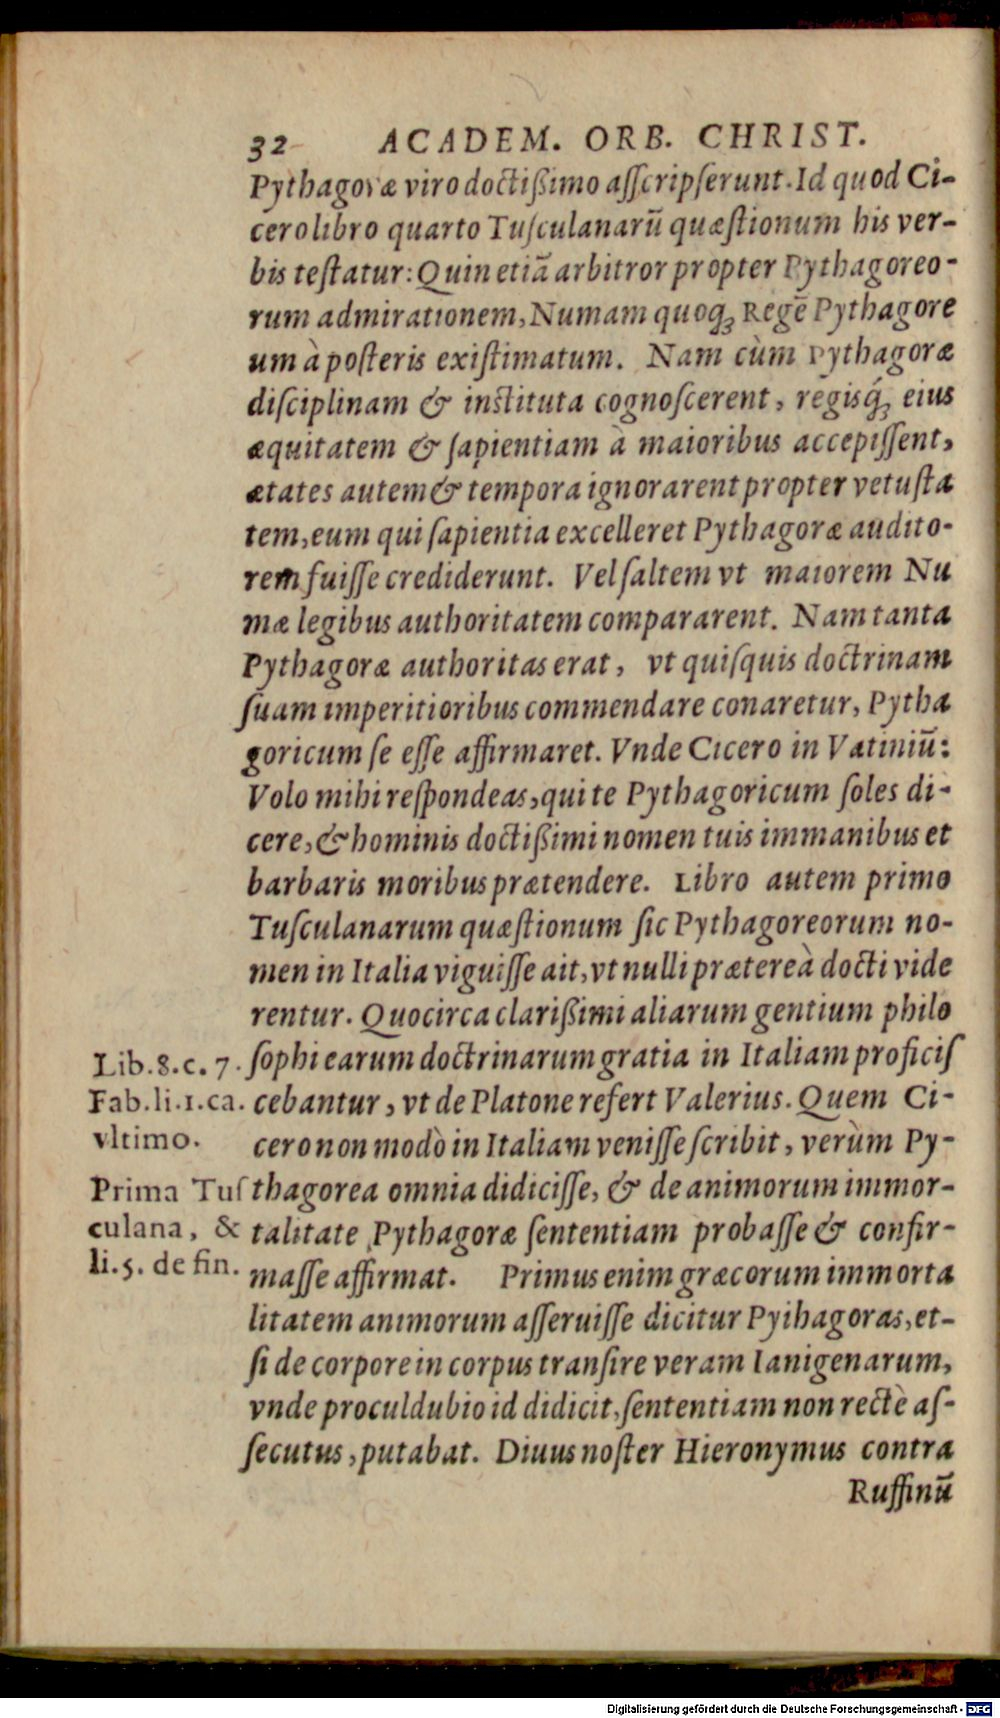 32 ACADEM. ORB. CHRIST.
Pythagoræ viro doctißimo aſſcripſerunt. Id quod Ci-
cero libro quarto Tuſculanarū quæſtionum his ver-
bis teſtatur: Quin etiā arbitror propter Pythagoreo-
rum admirationem, Numam quoq; Regē Pythagore
um à poſteris exiſtimatum. Nam cùm Pythagoræ
diſciplinam & inſtituta cognoſcerent, regisq́; eius
æquitatem & ſapientiam à maioribus accepiſſent,
ætates autem & tempora ignorarent propter vetuſta
tem, eum qui ſapientia excelleret Pythagoræ audito-
rem fuiſſe crediderunt. Vel ſaltem vt maiorem Nu
mæ legibus authoritatem compararent. Nam tanta
Pythagoræ authoritas erat, vt quiſquis doctrinam
ſuam imperitioribus commendare conaretur, Pytha
goricum ſe eſſe affirmaret. Vnde Cicero in Vatiniū:
Volo mihi reſpondeas, qui te Pythagoricum ſoles di-
cere, & hominis doctißimi nomen tuis immanibus et
barbaris moribus prætendere. Libro autem primo
Tuſculanarum quæſtionum ſic Pythagoreorum no-
men in Italia viguiſſe ait, vt nulli prætereà docti vide
rentur. Quocirca clarißimi aliarum gentium philo
Lib. 8. c. 7. ſophi earum doctrinarum gratia in Italiam proficiſ
Fab. li. 1. ca. cebantur, vt de Platone refert Valerius. Quem Ci-
vltimo. cero non modò in Italiam veniſſe ſcribit, verùm Py-
Prima Tuſ thagorea omnia didiciſſe, & de animorum immor-
culana, & talitate Pythagoræ ſententiam probaſſe & confir-
li. 5. de fin. maſſe affirmat. Primus enim græcorum immorta
litatem animorum aſſeruiſſe dicitur Pyihagoras, et-
ſi de corpore in corpus tranſire veram Ianigenarum,
vnde proculdubio id didicit, ſententiam non rectè aſ-
ſecutus, putabat. Diuus noſter Hieronymus contra
Ruffinū
Digitalisierung gefördert durch die Deutsche Forschungsgemeinschaft - DFG